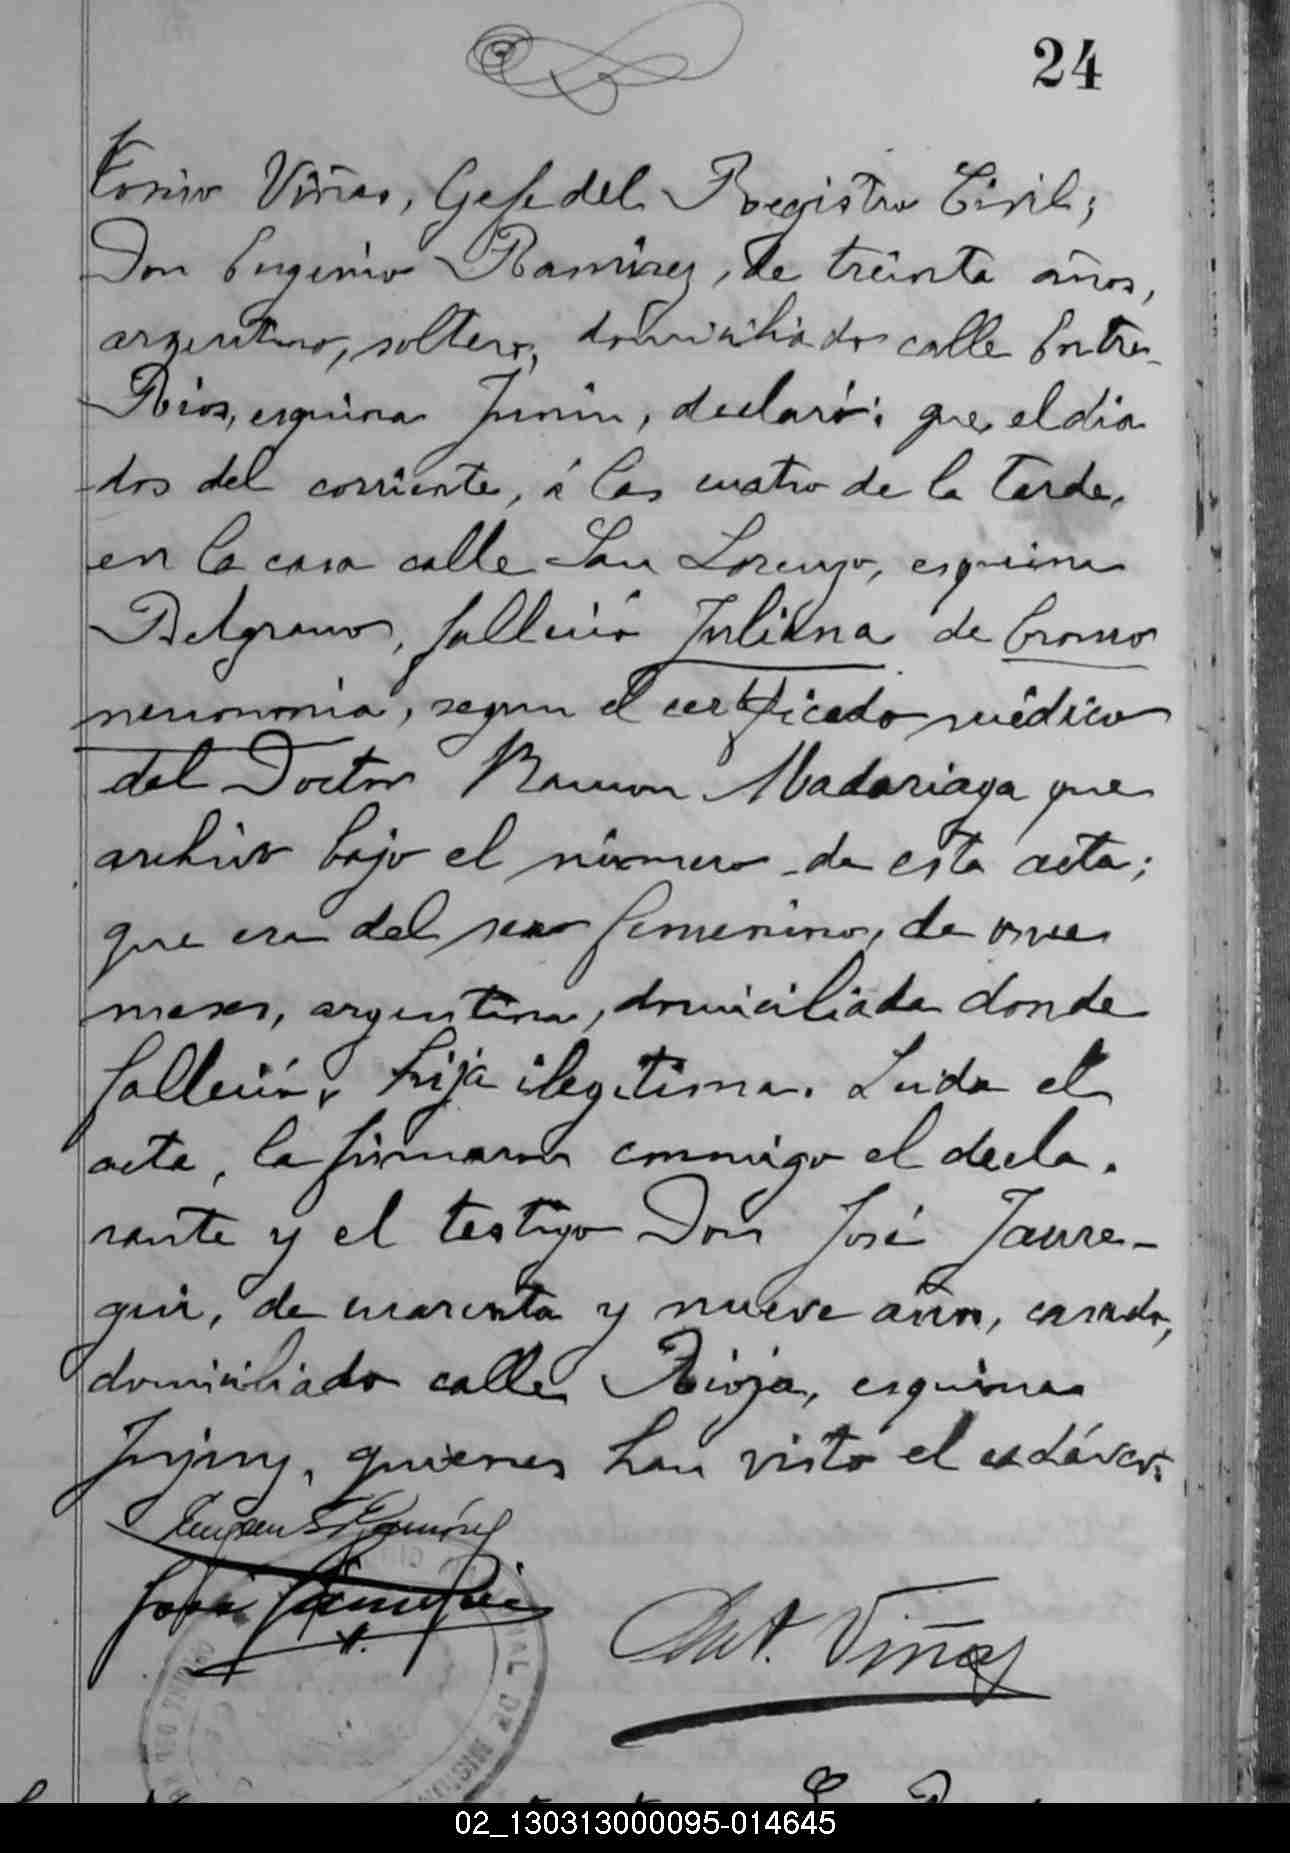 24
tonino Viñas, Gefe del Registro Civil;
Don Eugenio Ramirez, de treinta años,
argentino, soltero, domiciliado calle Entre
Rios, esquina Junin, declaró: que el dia
dos del corriente, á las cuatro de la tarde,
en la casa calle San Lorenzo, esquina
Belgrano, falleció Juliana de bronco
neumonia, segun el certificado médico
del Doctor Ramon Madariaga que
archivo bajo el número de esta acta;
que era del sexo femenino, de once
meses, argentina, domiciliada donde
falleció, hija ilegitima. Leida el
acta, la firmaron conmigo el decla.
rante y el testigo Don José Jaure-
gui, de cuarenta y nueve años, casado,
domiciliado calle Rioja, esquina
Jujuy, quienes han visto el cadáver.
Eugenio Ramírez
José Jauregui
Ant. Viñas
02_130313000095-014645